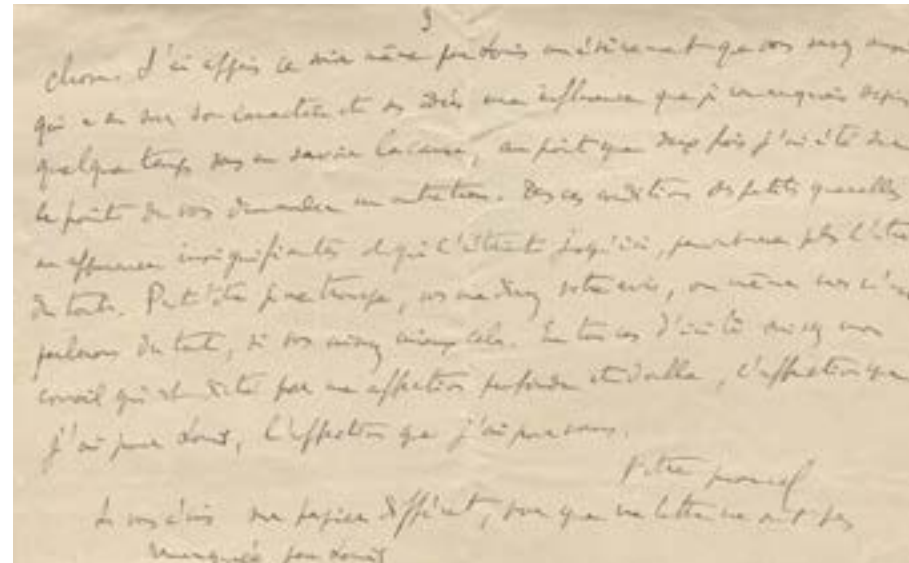 3
choses. J'ai appris ce soir même par Louis que vous
qui a eu sur son caractère et ses idées une influence que je remarquais depuis
quelque temps sans en savoir la cause, au point que deux fois j'ai été sur
le point de vous demander un entretien. Dans ces conditions des petites querelles
en apparence insignifiantes et qui l'étaient jusqu'ici, peuvent ne plus l'être
du tout. Peut'être je me trompe, vous me direz votre avis, ou même nous n'en
parlerons du tout, si vous aimez mieux cela. En tous cas mon
conseil qui est dicté par une affection profonde et double, l'affection que
j'ai pour Louis, l'affection que j'ai pour vous.
Votre Marcel
Je vous écris sur papier différent, pour que ma lettre ne soit pas
remarquée par Louis